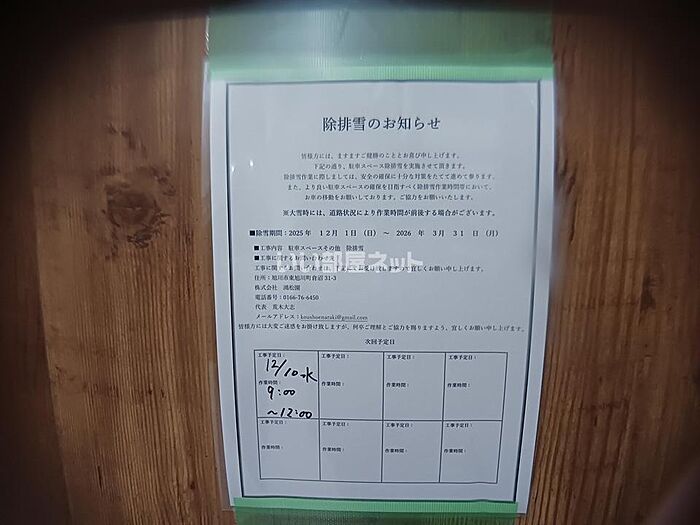 除排雪のお知らせ
皆様方には、ますますご健勝のこととお喜び申し上げます。
下記の通り、駐車スペース除排雪を実施させて頂きます。
除排雪作業に際しましては、安全の確保に十分な対策をたてて進めて参ります。
また、より良い駐車スペースの確保を目指すべく除排雪作業時間帯において、
お車の移動をお願いしております。ご協力をお願いいたします。
※大雪時には、道路状況により作業時間が前後する場合がございます。
■除雪期間：2025年 12月 1日（日）～ 2026年 3月 31日（月）
■工事内容 駐車スペースその他 除排雪
■工事に関するお問い合わせ
いい部屋ネット
工事に関して
宜しくお願い申し上げます。
住所：旭川市東旭川町倉沼31-3
株式会社 鴻松園
電話番号：0166-76-6450
代表 荒木大志
メールアドレス：koushoenaraki@gmail.com
皆様方には大変ご迷惑をお掛け致しますが、何卒ご理解とご協力を賜りますよう、宜しくお願い申し上げます。
次回予定日
工事予定日： 工事予定日： 工事予定日： 工事予定日：
12/10 水
作業時間： 作業時間： 作業時間： 作業時間：
9:00
～12:00
工事予定日： 工事予定日： 工事予定日： 工事予定日：
作業時間： 作業時間： 作業時間： 作業時間：